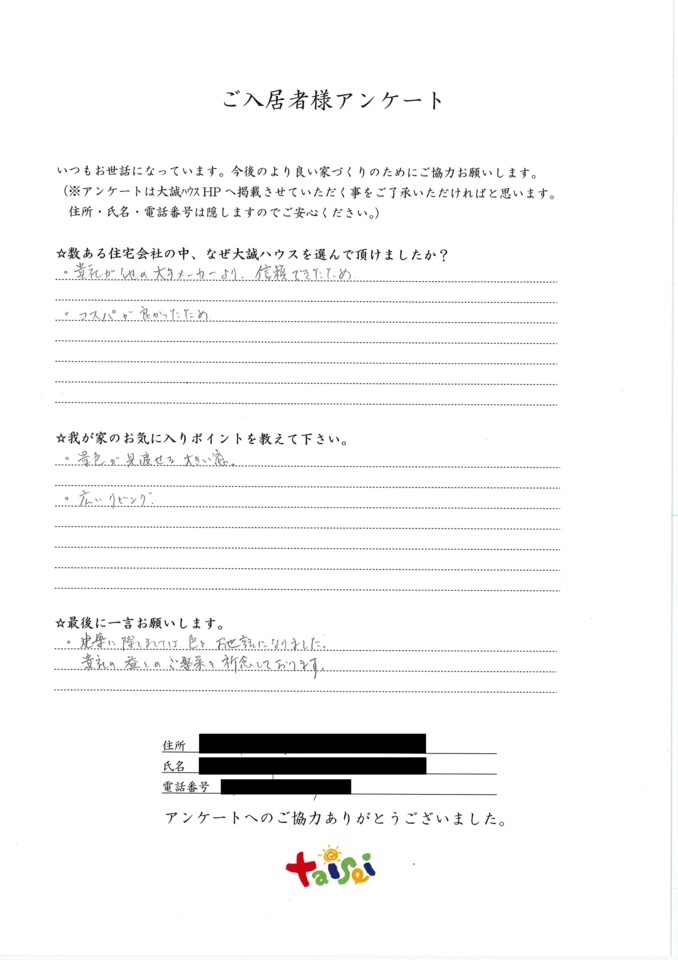 ご入居者様アンケート
いつもお世話になっています。今後のより良い家づくりのためにご協力お願いします。
(※アンケートは大誠ハウスHPへ掲載させていただく事をご了承いただければと思います。
住所・氏名・電話番号は隠しますのでご安心ください。)
☆数ある住宅会社の中、なぜ大誠ハウスを選んで頂けましたか？
・貴社が他の大手メーカーより、信頼できたため
・コスパが良かったため
☆我が家のお気に入りポイントを教えて下さい。
・景色が見渡せる大きい窓。
・広いリビング
☆最後に一言お願いします。
・建築に際しましては色々お世話になりました。
貴社の益々のご発展を祈念しております。
住所
氏名
電話番号
アンケートへのご協力ありがとうございました。
taisei